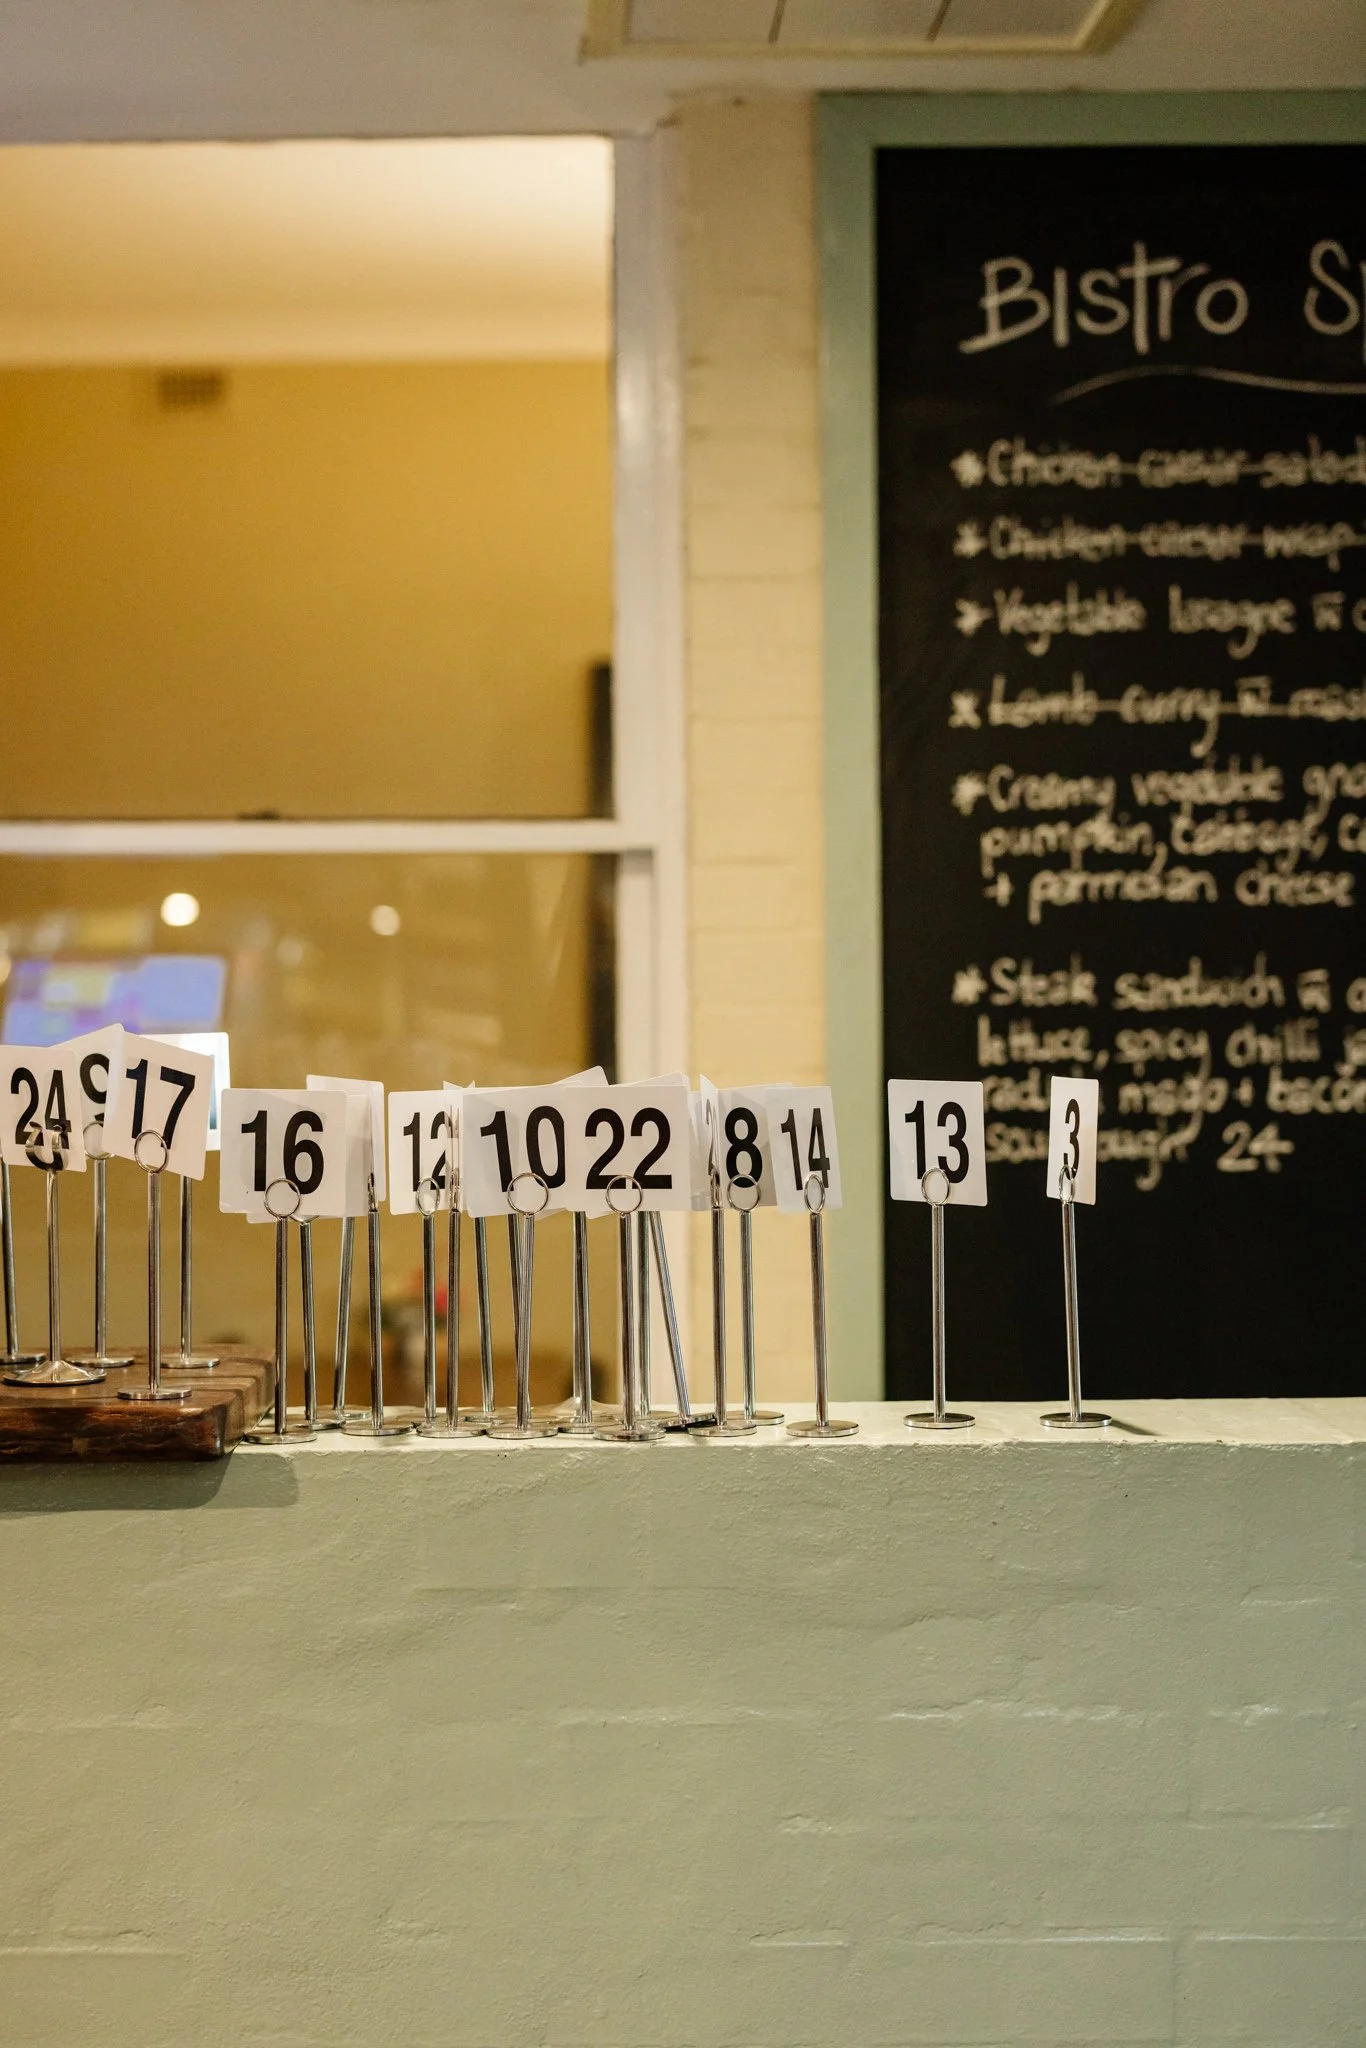 Bistro Sp
* Chicken caesar salad
* Chicken caesar wrap
* Vegetable lasagne w̄
* Lamb curry w̄
* Creamy vegetable
pumpkin, cabbage,
+ parmesan cheese
* Steak sandwich w̄
lettuce, spicy chilli
mayo + bacon
24
24
9
17
16
12
10
22
8
14
13
3